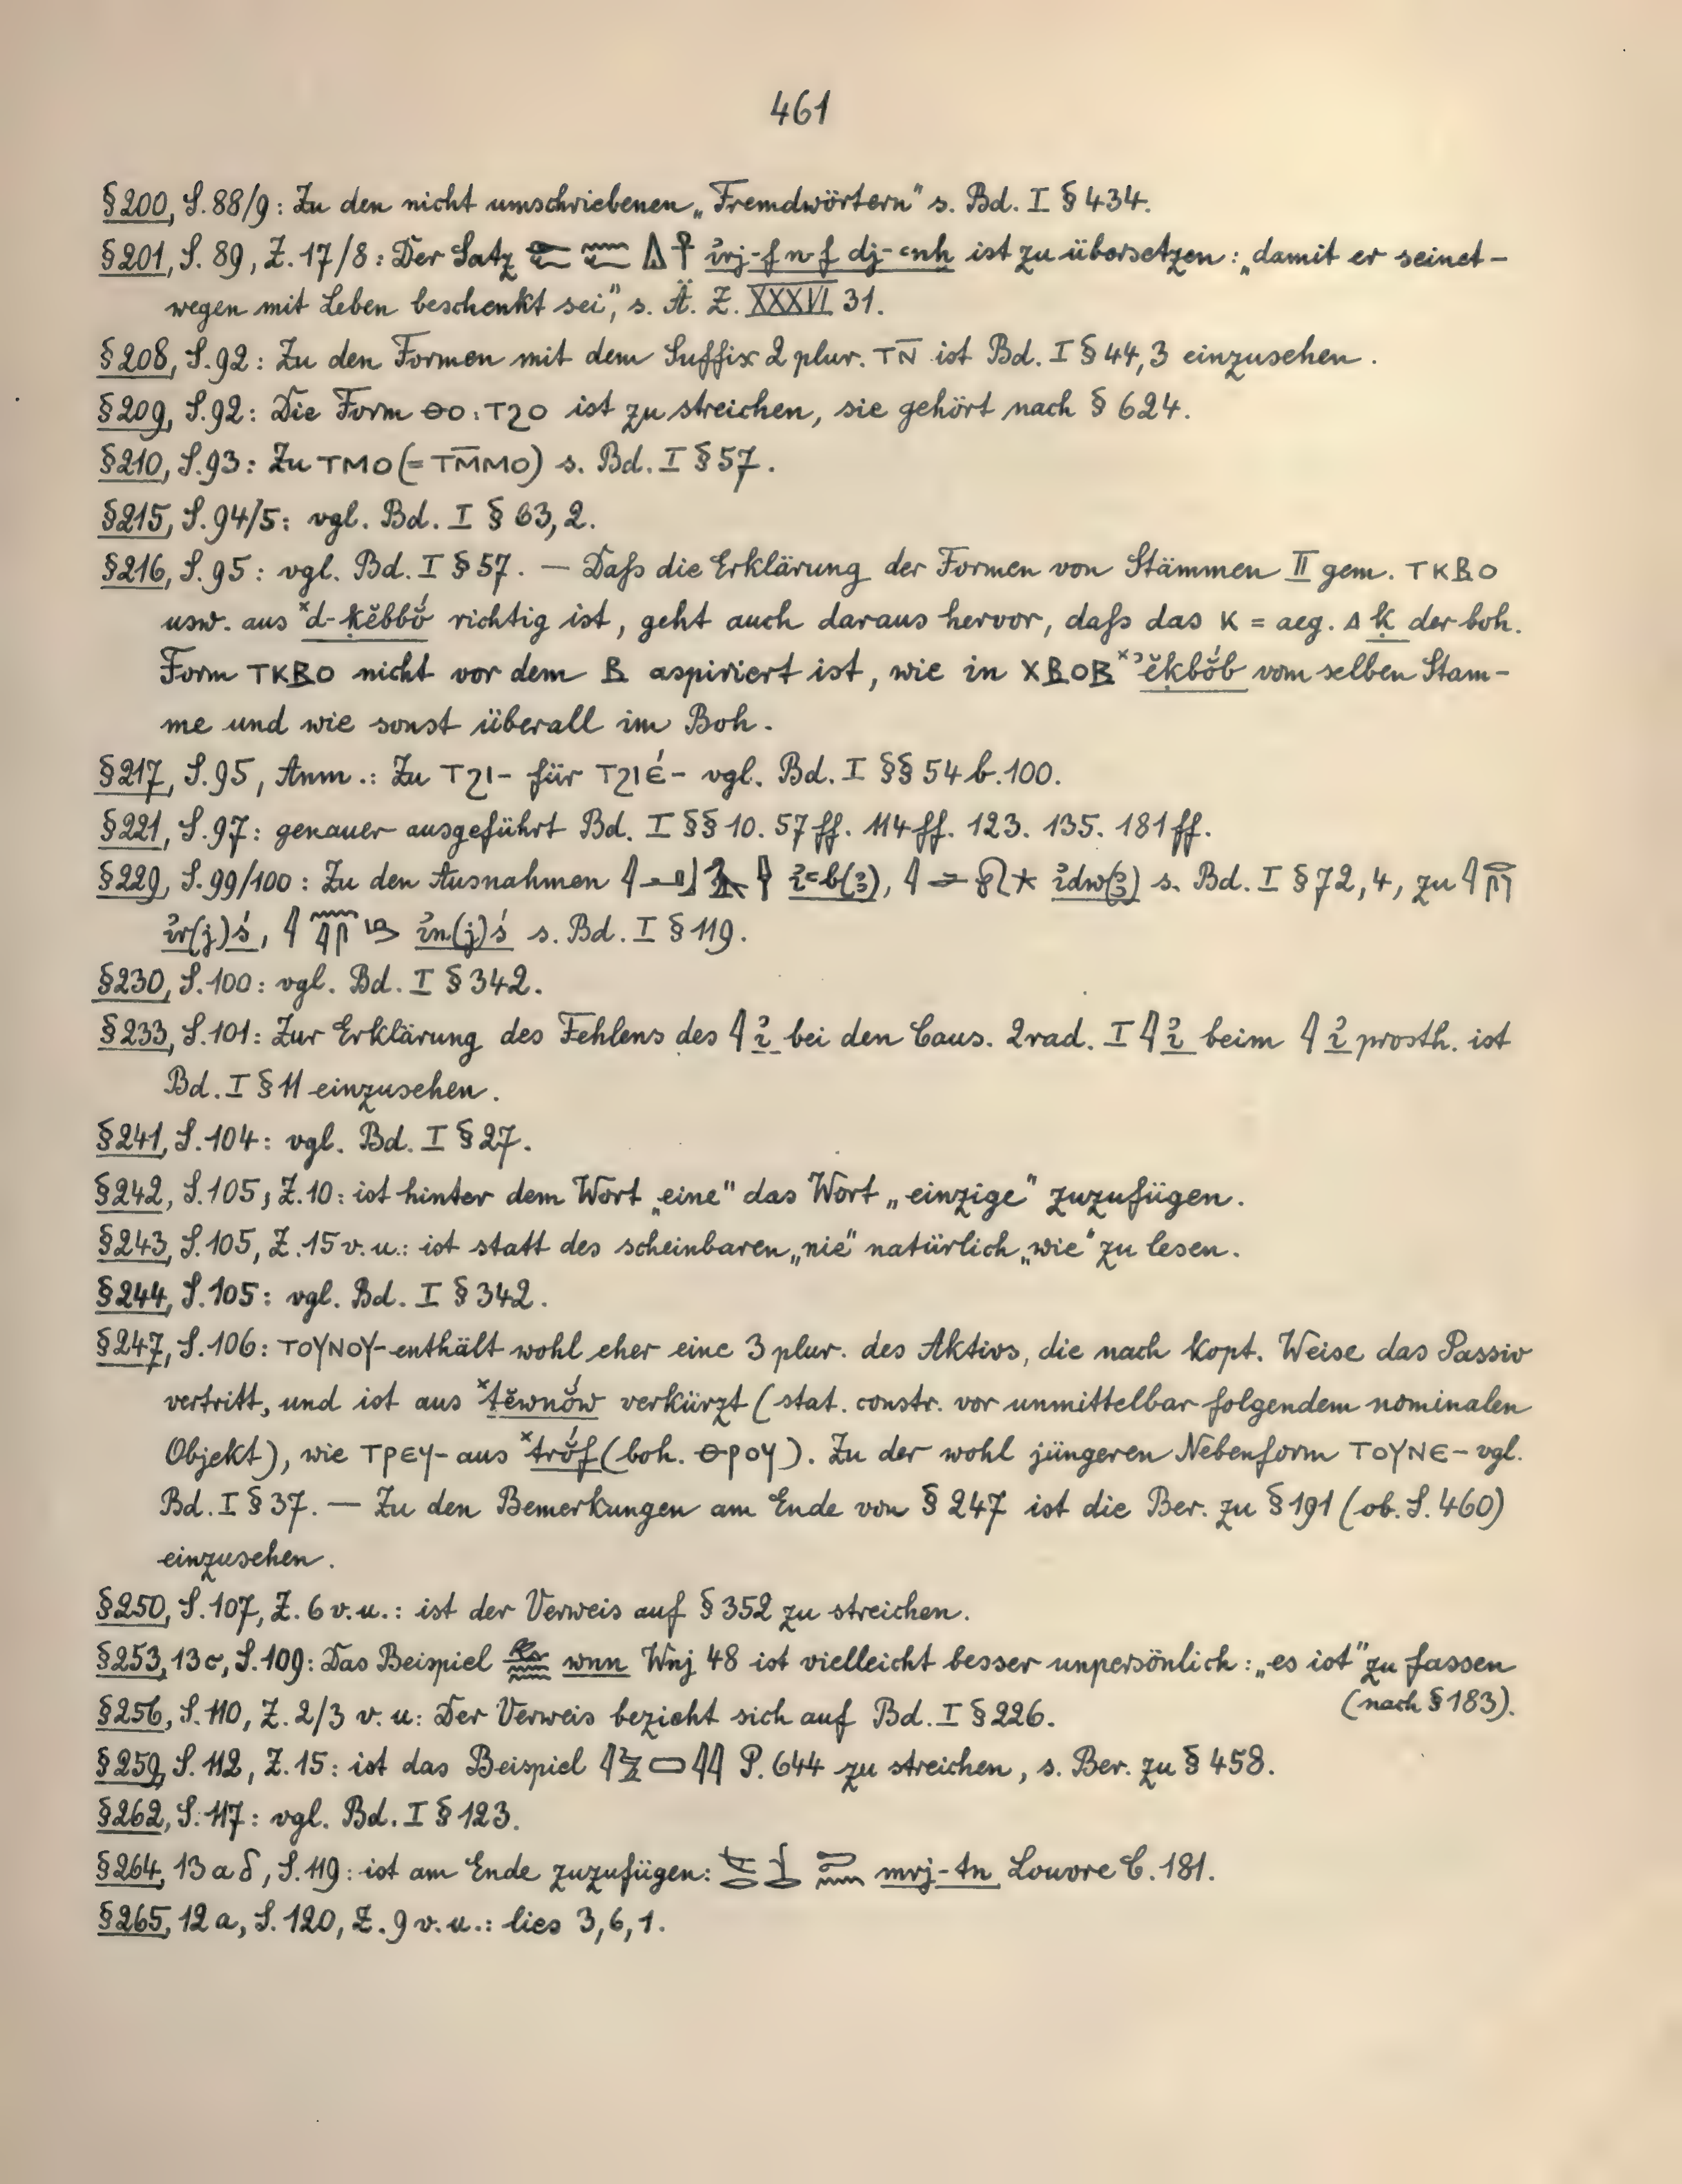 461
§200, S. 88/9: Zu den nicht umschriebenen „Fremdwörtern" s. Bd. I § 434.
§201, S. 89, Z. 17/8: Der Satz 𓁹𓆑 𓈖𓆑 𓏙𓋹 ı͗rj-f n-f dj-ꜥnḫ ist zu übersetzen: „damit er seinet-
wegen mit Leben beschenkt sei", s. Ä. Z. XXXVI 31.
§208, S. 92: Zu den Formen mit dem Suffix 2 plur. ⲧⲛ̅ ist Bd. I § 44,3 einzusehen.
§209, S. 92: Die Form ⲑⲟ : ⲧϩⲟ ist zu streichen, sie gehört nach § 624.
§210, S. 93: Zu ⲧⲙⲟ (= ⲧⲙ̅ⲙⲟ) s. Bd. I § 57.
§215, S. 94/5: vgl. Bd. I § 63, 2.
§216, S. 95: vgl. Bd. I § 57. — Daſs die Erklärung der Formen von Stämmen II gem. ⲧⲕⲃⲟ
usw. aus ˣd-ḳĕbbŏ́ richtig ist, geht auch daraus hervor, daſs das ⲕ = aeg. 𓈎 ḳ der boh.
Form ⲧⲕⲃⲟ nicht vor dem ⲃ aspiriert ist, wie in ⲭⲃⲟⲃ ˣʾĕḳbŏ́b vom selben Stam-
me und wie sonst überall im Boh.
§217, S. 95, Anm.: Zu ⲧϩⲓ- für ⲧϩⲓⲉ́- vgl. Bd. I §§ 54 b. 100.
§221, S. 97: genauer ausgeführt Bd. I §§ 10. 57 ff. 114 ff. 123. 135. 181 ff.
§229, S. 99/100: Zu den Ausnahmen ı͗ꜥb(ꜣ), ı͗dw(ꜣ) s. Bd. I § 72, 4, zu
ı͗r(j)ś, ı͗n(j)ś s. Bd. I § 119.
§230, S. 100: vgl. Bd. I § 342.
§233, S. 101: Zur Erklärung des Fehlens des 𓇋 ı͗ bei den Caus. 2rad. I 𓇋 ı͗ beim 𓇋 ı͗ prosth. ist
Bd. I § 11 einzusehen.
§241, S. 104: vgl. Bd. I § 27.
§242, S. 105, Z. 10: ist hinter dem Wort „eine" das Wort „einzige" zuzufügen.
§243, S. 105, Z. 15 v. u.: ist statt des scheinbaren „nie" natürlich „wie" zu lesen.
§244, S. 105: vgl. Bd. I § 342.
§247, S. 106: ⲧⲟⲩⲛⲟⲩ- enthält wohl eher eine 3 plur. des Aktivs, die nach kopt. Weise das Passiv
vertritt, und ist aus ˣtĕwnŏ́w verkürzt (stat. constr. vor unmittelbar folgendem nominalen
Objekt), wie ⲧⲣⲉϥ- aus ˣtrŏ́f (boh. ⲑⲣⲟϥ). Zu der wohl jüngeren Nebenform ⲧⲟⲩⲛⲉ- vgl.
Bd. I § 37. — Zu den Bemerkungen am Ende von § 247 ist die Ber. zu § 191 (ob. S. 460)
einzusehen.
§250, S. 107, Z. 6 v. u.: ist der Verweis auf § 352 zu streichen.
§253, 13c, S. 109: Das Beispiel 𓃹𓈖𓈖 wnn Wnj 48 ist vielleicht besser unpersönlich: „es ist" zu fassen
(nach § 183).
§256, S. 110, Z. 2/3 v. u: Der Verweis bezieht sich auf Bd. I § 226.
§259, S. 112, Z. 15: ist das Beispiel P. 644 zu streichen, s. Ber. zu § 458.
§262, S. 117: vgl. Bd. I § 123.
§264, 13 a δ, S. 119: ist am Ende zuzufügen: mrj-ṯn Louvre C. 181.
§265, 12 a, S. 120, Z. 9 v. u.: lies 3, 6, 1.